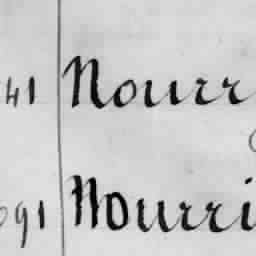 41 Nourr
91 Nourri